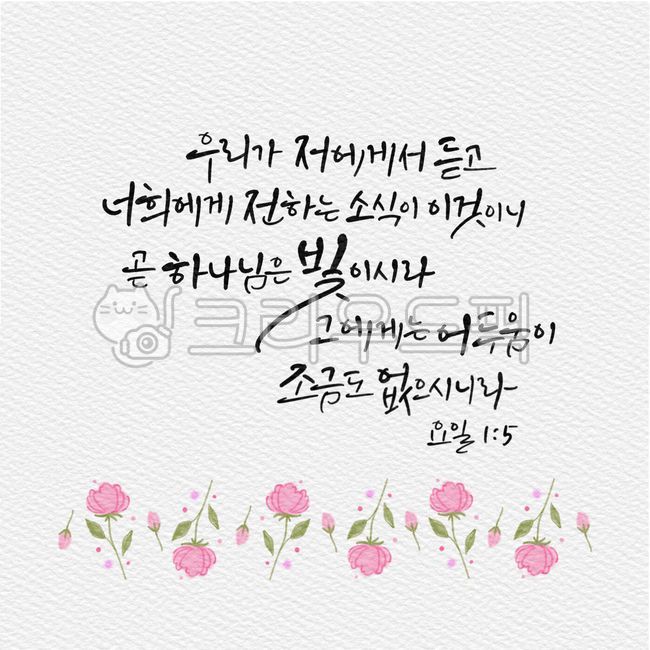 우리가 저에게서 듣고
너희에게 전하는 소식이 이것이니
곧 하나님은 빛이시라
그에게는 어두움이
조금도 없으시니라
요일 1:5
크라우드픽